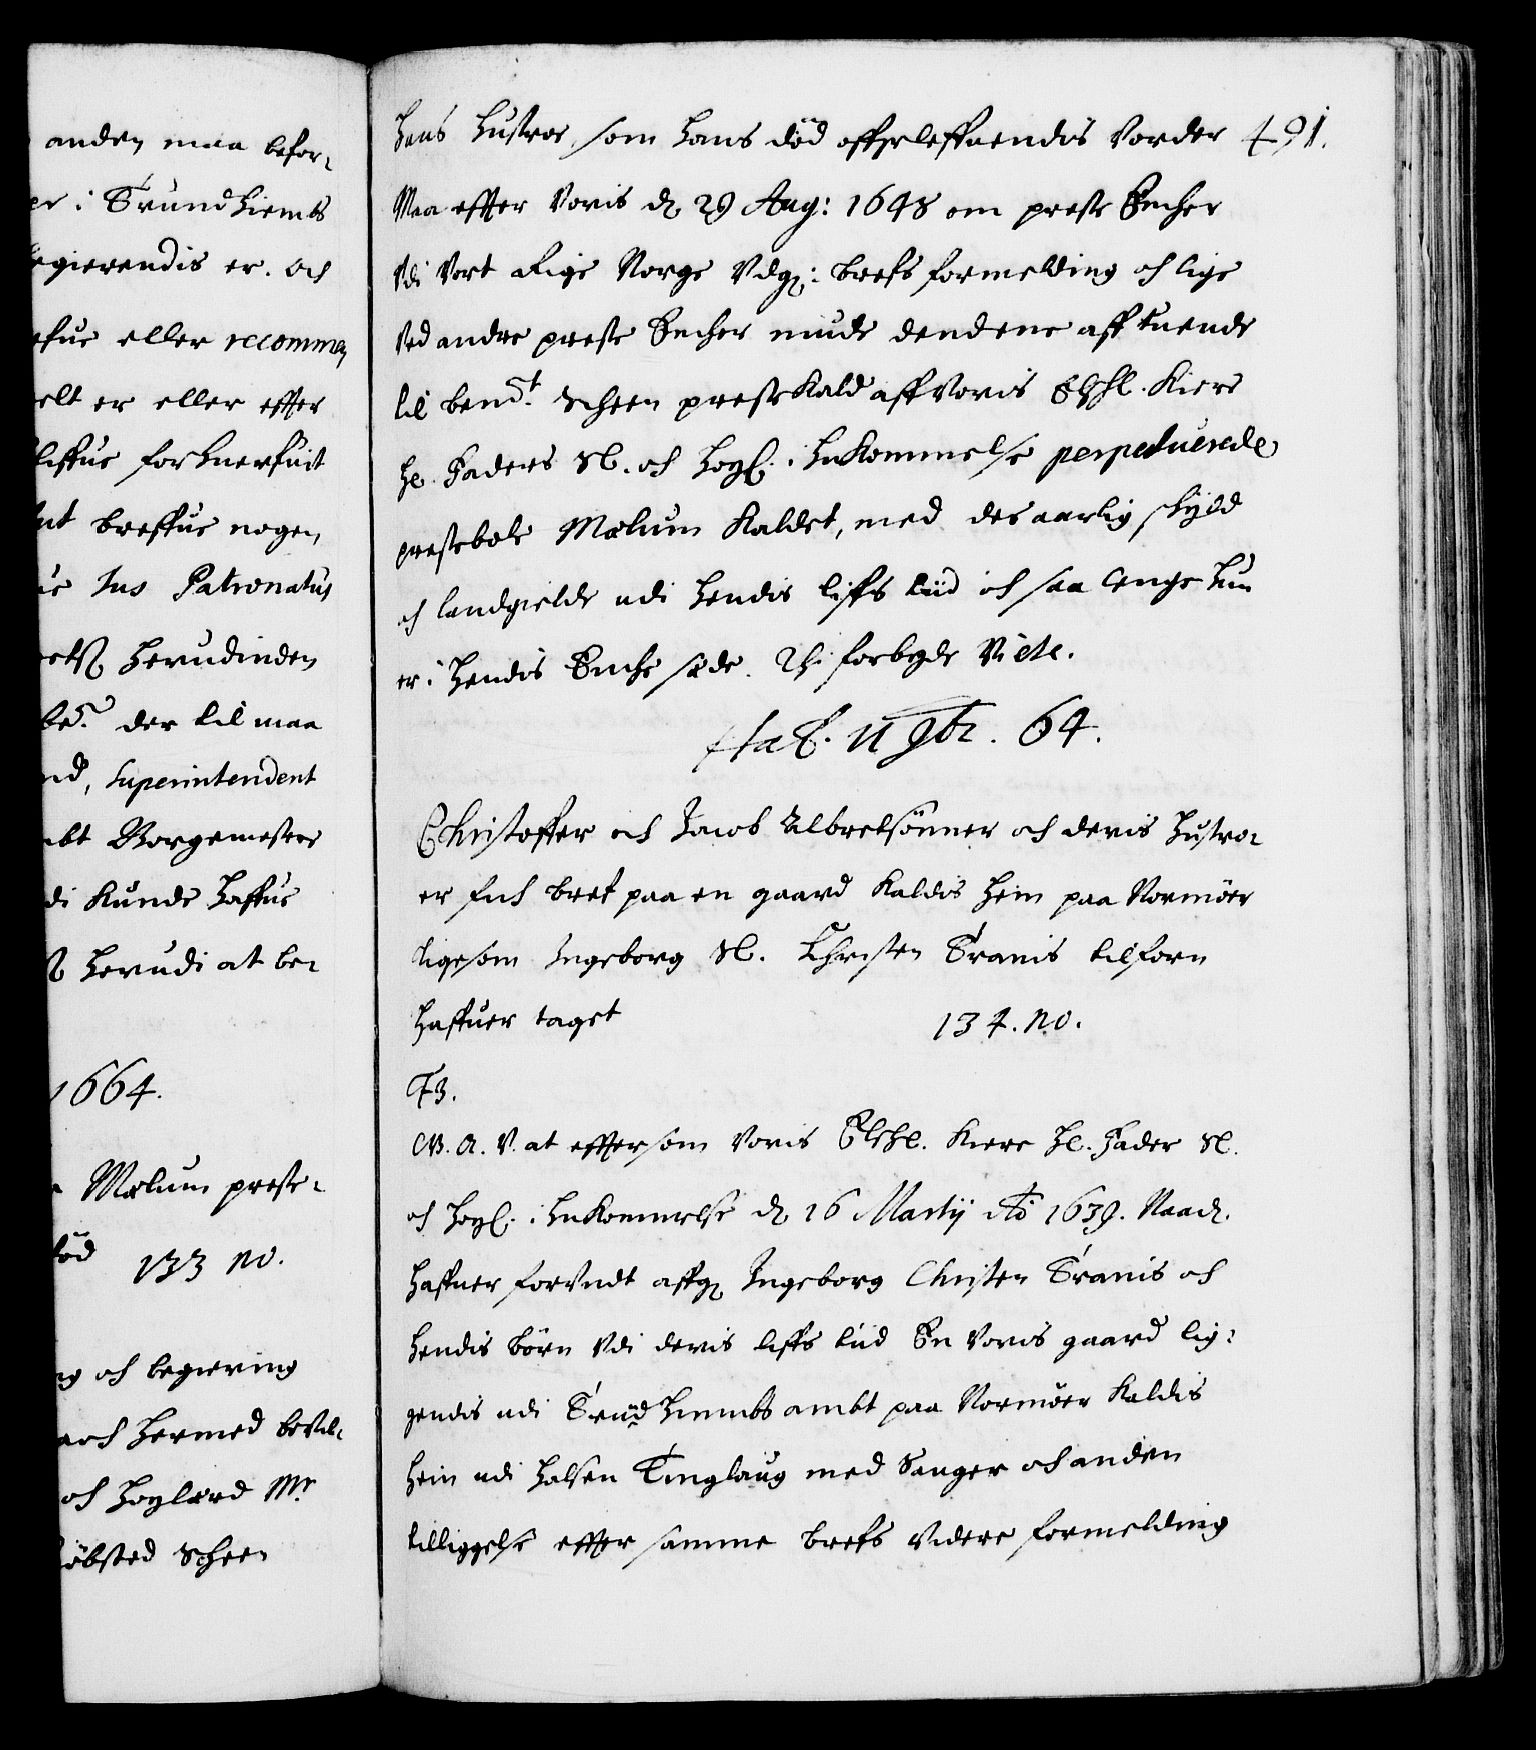 anden maa befor-
er i Trundhiembs
regierendis er. och
efue eller recommen
elt er eller effter
liffue forhuerfuit
breffue nogen
Jus Patronatus
herudinden
der til maa
nd, Superintendent
mbt Borgemester
di kunde haffue
herudi at be-
1664.
Mælum preste-
død 133 no.
ng och begiering
och hermed bevil-
och høylærd Mr
kiøbsted Scheen
491.
hans hustrue, som hans død offuerleffuendis vorder
Maa effter voris d. 29 Aug: 1648 om preste Encher
Vdi vort Rige Norge Vdg: brefs formelding och lige
ved andre preste Encher niude dend ene aff tuende
til bemt. Scheen prestekald aff voris Elshl. Kiere
Hr. Faders Sl. och høyl. i hukommelse perpetuerede
prestebole Mælum kaldet, med des aarlig skyld
och landgielde udi hendis liffs tiid och saa lenge hun
er i hendis Enche sæde. Thi forbyde Vi etc.
Haf. 11 9br. 64.
Christoffer och Jacob Albretsønner och deris hustro-
er fich bref paa en gaard kaldis Hein paa Normøer
ligesom Ingeborg Sl. Christen Tranis tilforn
haffuer taget 134. no.
F3.
G. A. V. at efftersom voris Elshl. Kiere Hr. Fader Sl.
och høyl. i hukommelse d. 16 Martij Ao 1639. Naad.
haffuer forundt affg. Ingeborg Christen Tranis och
hendis børn Vdi deris liffs tiid En voris gaard lig-
gendis udi Trundhiembs ambt paa Normøer kaldis
Hein udi Halsen Tinglaug med Sauger och anden
tilliggelse effter samme brefs videre formelding